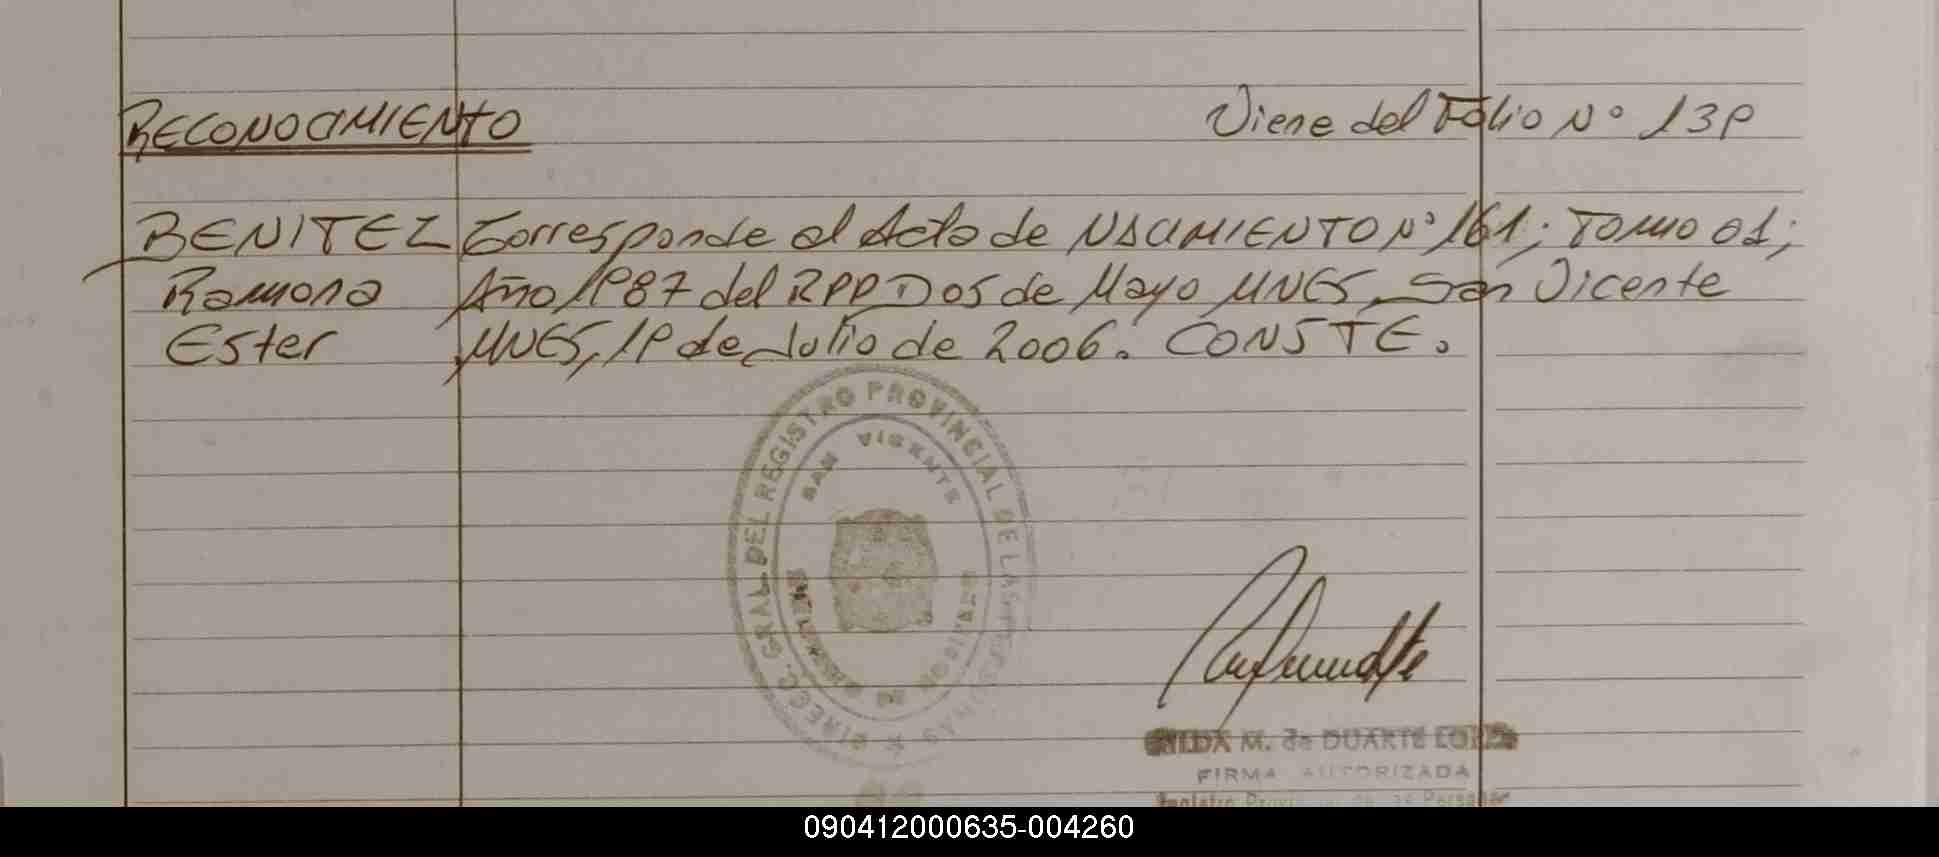 RECONOCIMIENTO
Viene del Folio Nº 139
BENITEZ Corresponde al Acta de NACIMIENTO Nº 161; TOMO 01;
Ramona Año 1987 del RPP Dos de Mayo MNES, San Vicente
Ester MNES, 19 de Julio de 2006. CONSTE.
DIRECC. GRAL. DEL REGISTRO PROVINCIAL DE LAS PERSONAS
SAN VICENTE
M. de DUARTE
FIRMA AUTORIZADA
Registro Provincial de las Personas
090412000635-004260